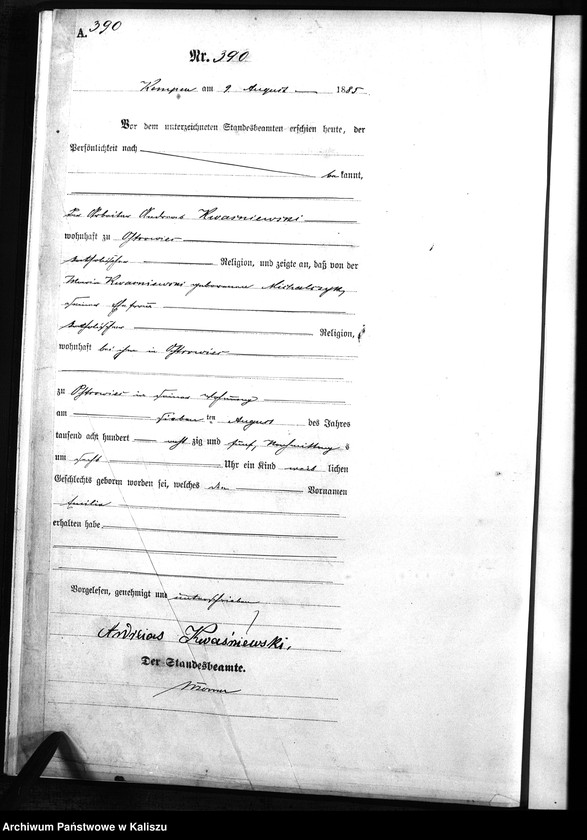 A. 390
Nr. 390
Kempen am 9 August 1885.
Vor dem unterzeichneten Standesbeamten erschien heute, der
Persönlichkeit nach
bekannt,
der Arbeiter Andreas Kwaśniewski
wohnhaft zu
katholischer Religion, und zeigte an, daß von der
Maria Kwaśniewski geborenen
seiner Ehefrau
katholischer Religion,
wohnhaft bei ihm in
zu in seiner Wohnung
am sieben ten August des Jahres
tausend acht hundert acht zig und fünf, Nachmittag s
um Uhr ein Kind weib lichen
Geschlechts geboren worden sei, welches den Vornamen
erhalten habe.
Vorgelesen, genehmigt und unterschrieben
Andreas Kwaśniewski,
Der Standesbeamte.
Archiwum Państwowe w Kaliszu